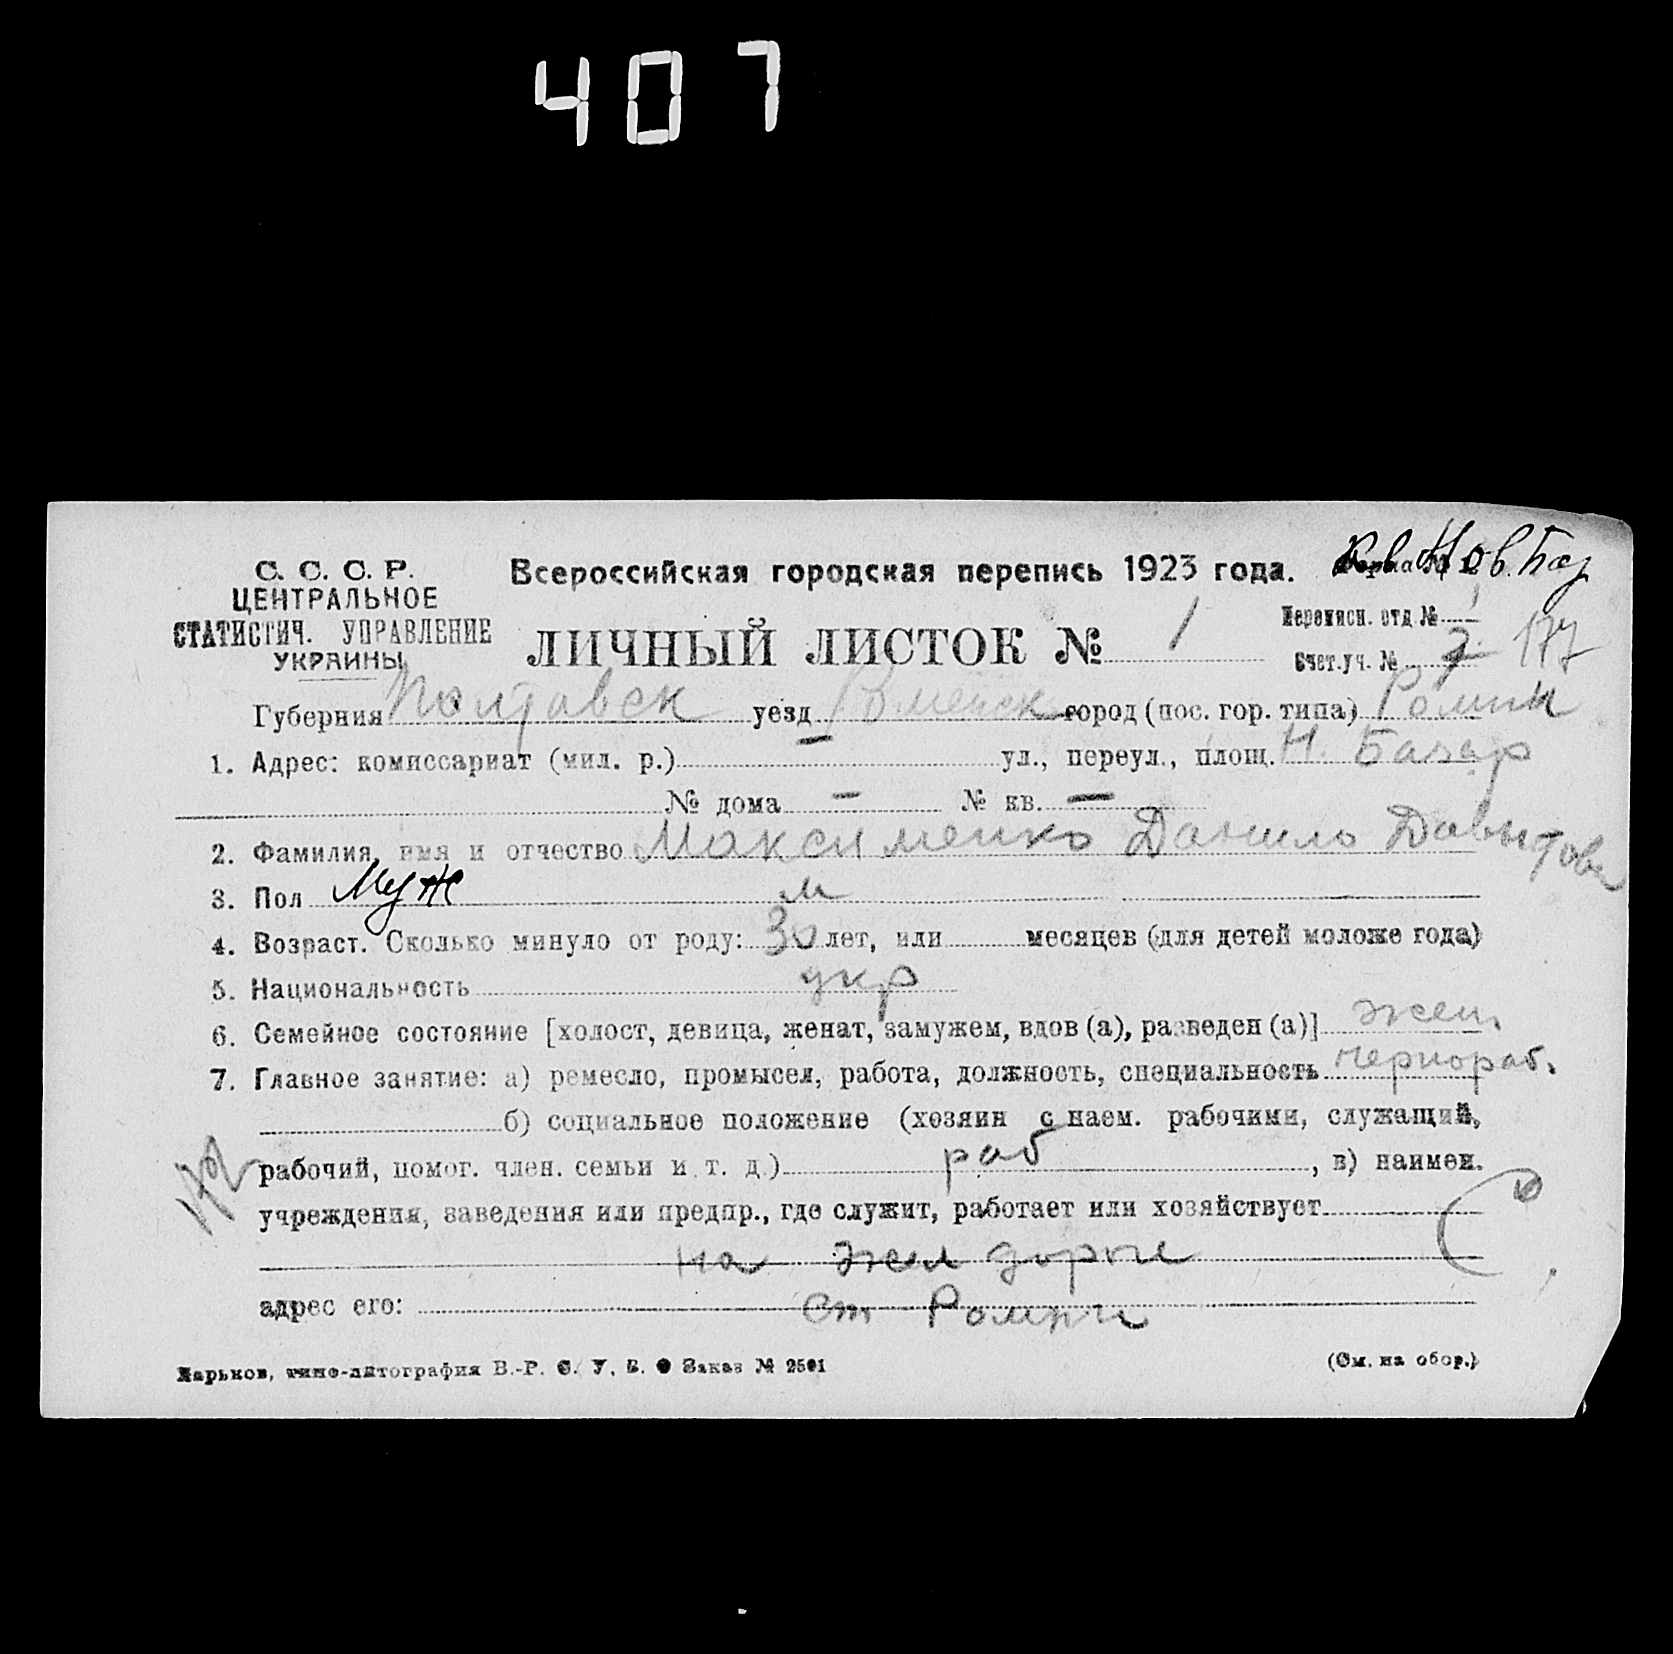 407
С. С. С. Р.
ЦЕНТРАЛЬНОЕ
СТАТИСТИЧ. УПРАВЛЕНИЕ
УКРАИНЫ
Всероссийская городская перепись 1923 года.
Нов. Баз
ЛИЧНЫЙ ЛИСТОК № 1
Переписн. отд № 1
Счет.уч. № 2 177
Губерния Полтавск уезд Роменск город (пос. гор. типа) Ромны
1. Адрес: комиссариат (мил. р.) — ул., переул., площ. Н. Базар
№ дома — № кв. —
2. Фамилия, имя и отчество Максименко Данило Давытов
3. Пол Муж м
4. Возраст. Сколько минуло от роду: 30 лет, или месяцев (для детей моложе года)
5. Национальность укр
6. Семейное состояние [холост, девица, женат, замужем, вдов (а), разведен (а)] жен.
7. Главное занятие: а) ремесло, промысел, работа, должность, специальность чернораб.
б) социальное положение (хозяин с наем. рабочими, служащий,
рабочий, помог. член. семьи и т. д.) раб , в) наимен.
учреждения, заведения или предпр., где служит, работает или хозяйствует
на жел дороге
адрес его: ст Ромны
Харьков, типо-литография В.-Р. С. У. В. Заказ № 2501
(См. на обор.)